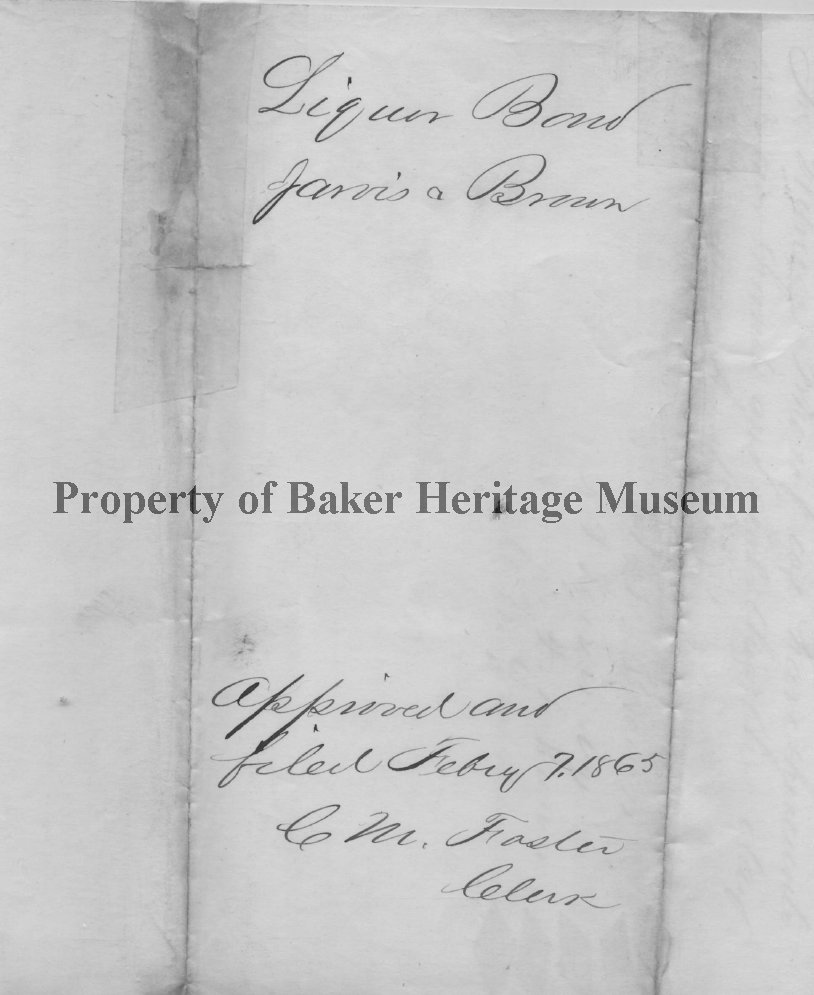 Liquor Bond
Jarvis & Brown
Property of Baker Heritage Museum
Approved and
filed Febuy 7. 1865
C M. Foster
Clerk